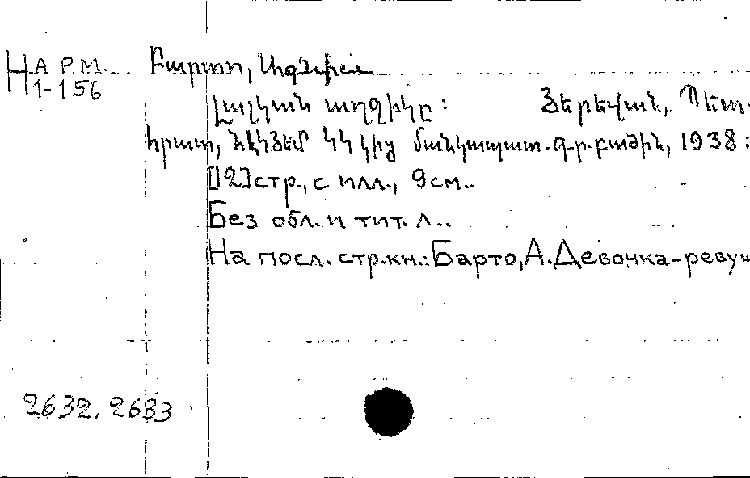 НАРМ. Բարտո, Ագնիա
1-156
Լալկան աղջիկը: Յերեվան, Պետ.
հրատ, ՀԼԿՅԵՄ ԿԿ կից մանկապատ. գ-ր. բաժին, 1938:
[12]стр., с илл., 9см..
Без обл. и тит. л..
На посл. стр.кн.: Барто, А. Девочка-ревуч
2632. 2683